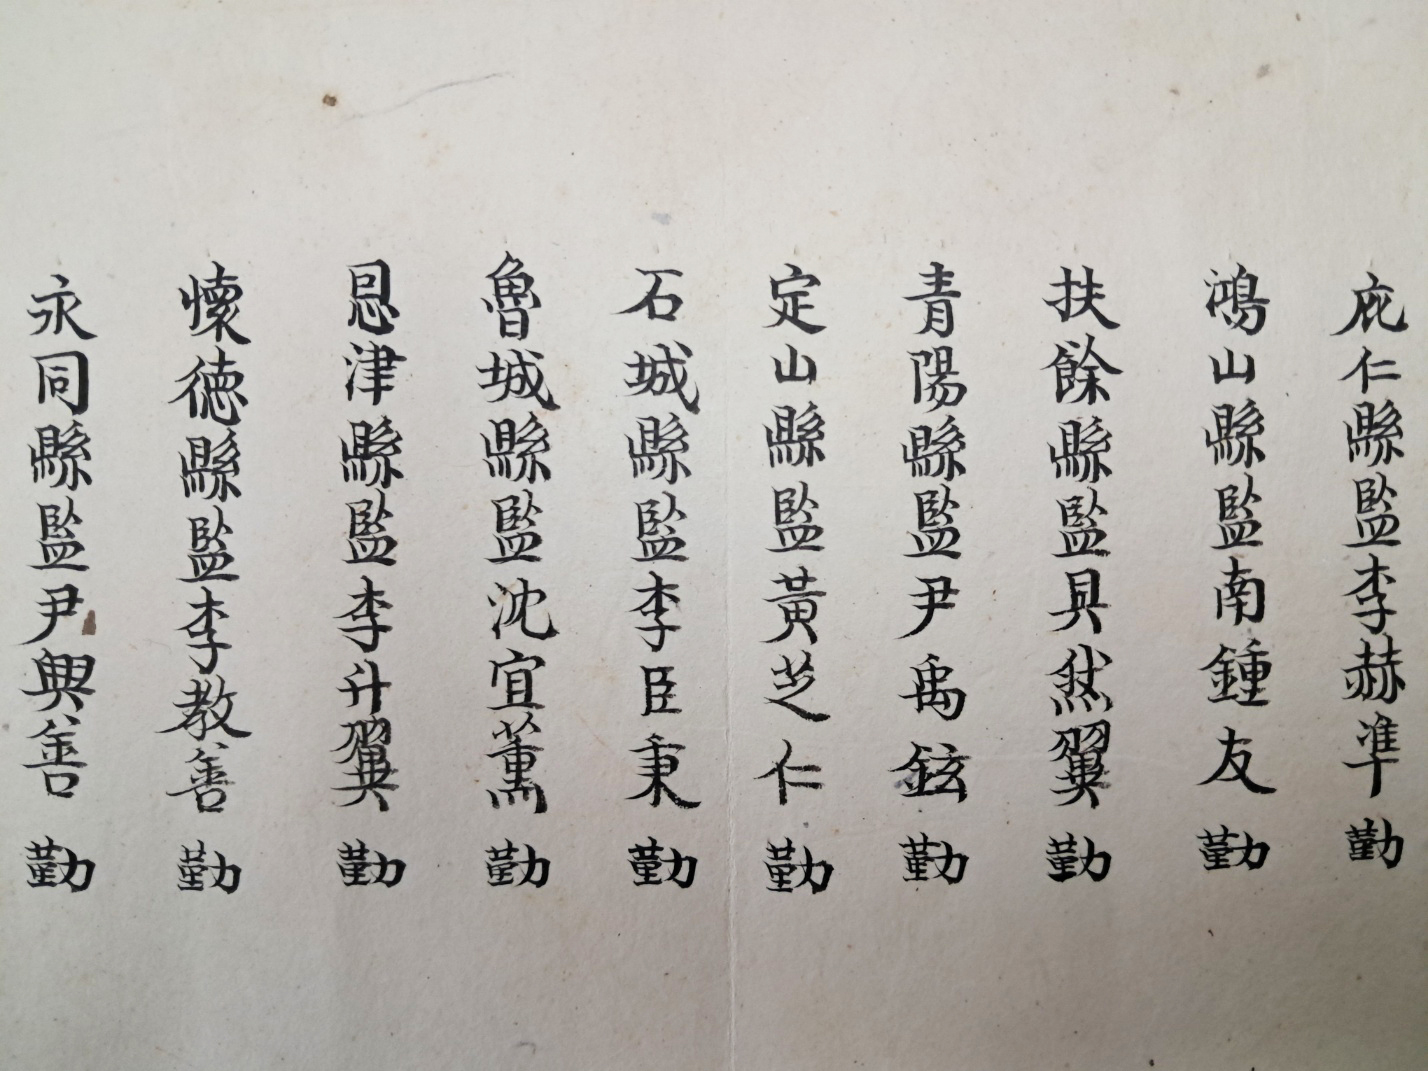 庇仁縣監李赫準 勤
鴻山縣監南鍾友 勤
扶餘縣監具然翼 勤
青陽縣監尹禹鉉 勤
定山縣監黃芝仁 勤
石城縣監李臣秉 勤
魯城縣監沈宜薰 勤
恩津縣監李升翼 勤
懷德縣監李教善 勤
永同縣監尹興善 勤